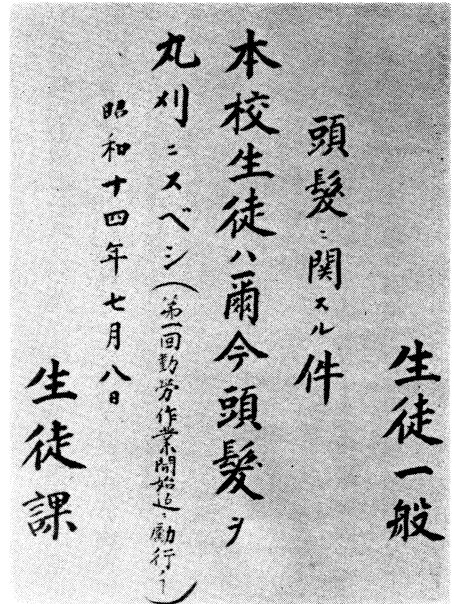 生徒一般
頭髮ニ関スル件
本校生徒ハ爾今頭髮ヲ
丸刈ニスベシ(第一回勤労作業開始迄ニ勵行ノ)
昭和十四年七月八日
生徒課